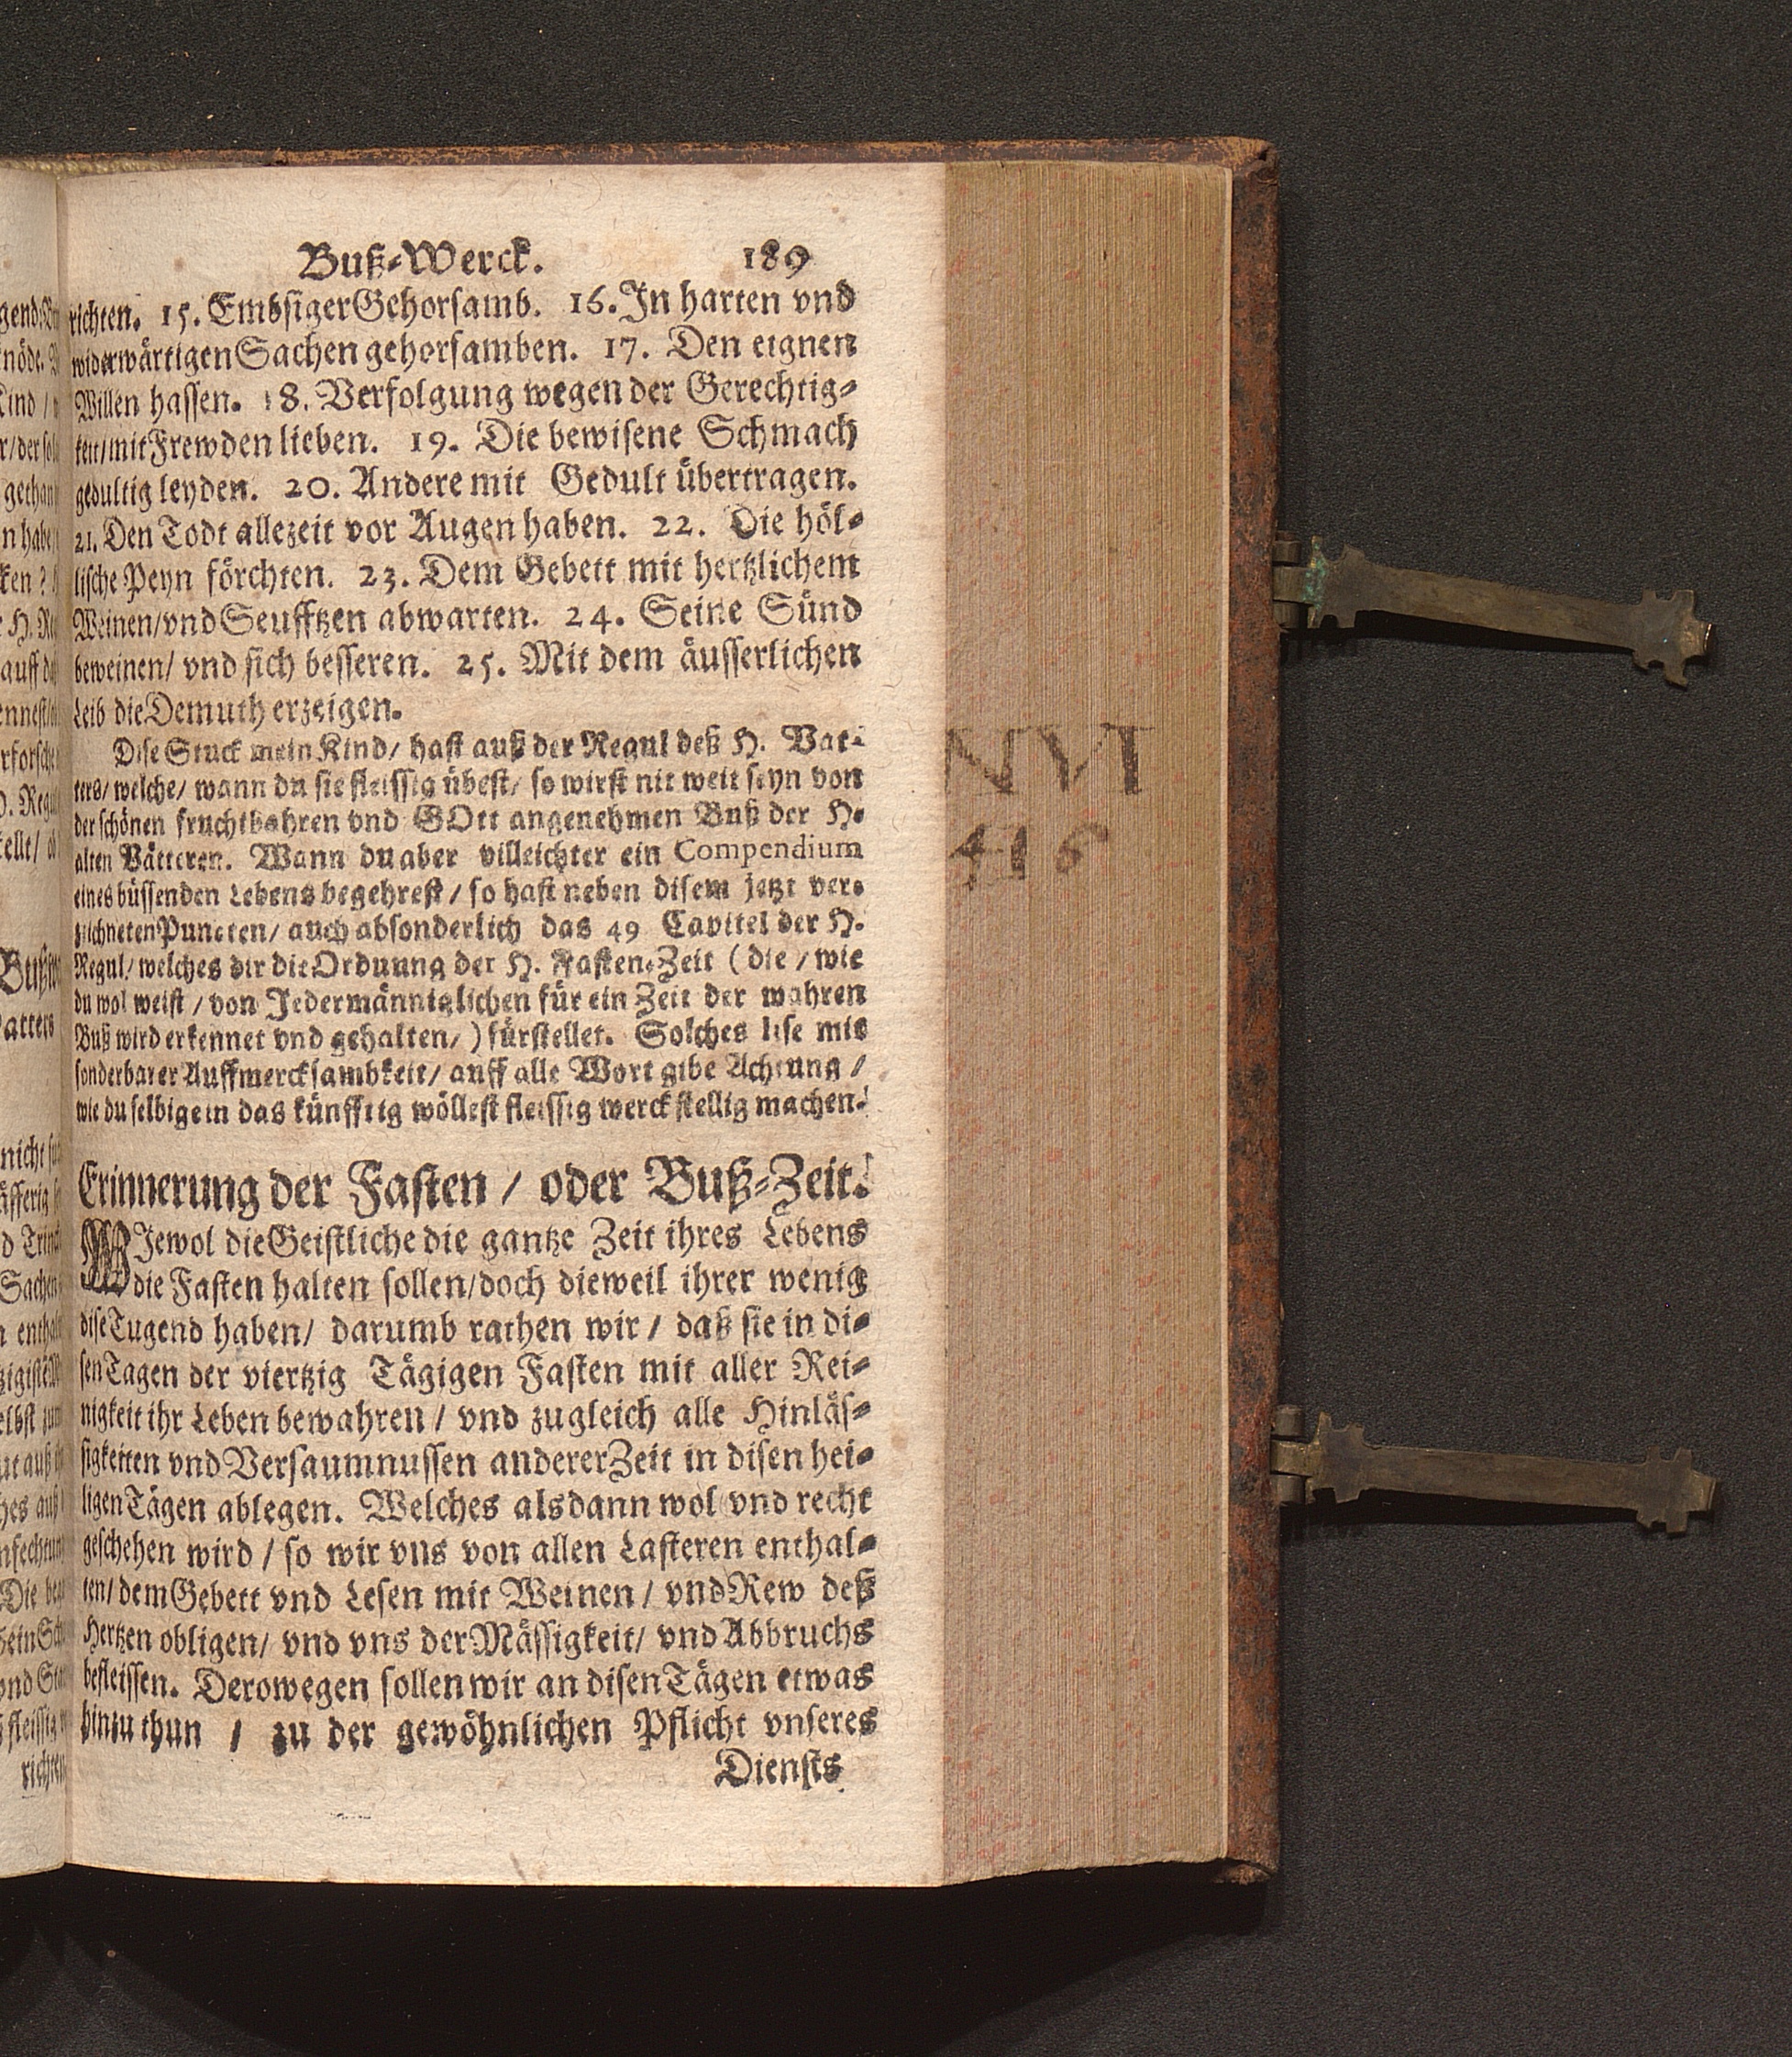 Buß-Werck. 189
richten. 15. Embsiger Gehorsamb. 16. In harten vnd
widerwärtigen Sachen gehorsamben. 17. Den eignen
Willen hassen. 18. Verfolgung wegen der Gerechtig-
keit / mit Frewden lieben. 19. Die bewisene Schmach
gedultig leyden. 20. Andere mit Gedult übertragen.
21. Den Todt allezeit vor Augen haben. 22. Die höl-
lische Peyn förchten. 23. Dem Gebett mit hertzlichem
Weinen / vnd Seufftzen abwarten. 24. Seine Sünd
beweinen / vnd sich besseren. 25. Mit dem äusserlichen
Leib die Demuth erzeigen.
Dise Stuck mein Kind / hast auß der Regul deß H. Vat-
ters / welche / wann du sie fleissig übest / so wirst nit weit seyn von
der schönen fruchtbahren vnd GOtt angenehmen Buß der H.
alten Vätteren. Wann du aber villeichter ein Compendium
eines büssenden Lebens begehrest / so hast neben disem jetzt ver-
zeichneten Puncten / auch absonderlich das 49 Capitel der H.
Regul / welches dir die Ordnung der H. Fasten-Zeit ( die / wie
du wol weist / von Jedermänniglichen für ein Zeit der wahren
Buß wird erkennet vnd gehalten / ) fürstellet. Solches lise mit
sonderbarer Auffmercksambkeit / auff alle Wort gibe Achtung /
wie du selbige in das künfftig wöllest fleissig werckstellig machen.
Erinnerung der Fasten / oder Buß-Zeit.
WIewol die Geistliche die gantze Zeit ihres Lebens
die Fasten halten sollen / doch dieweil ihrer wenig
dise Tugend haben / darumb rathen wir / daß sie in di-
sen Tagen der viertzig Tägigen Fasten mit aller Rei-
nigkeit ihr Leben bewahren / vnd zugleich alle Hinläs-
sigkeiten vnd Versaumnussen anderer Zeit in disen hei-
ligen Tägen ablegen. Welches alsdann wol vnd recht
geschehen wird / so wir vns von allen Lasteren enthal-
ten / dem Gebett vnd Lesen mit Weinen / vnd Rew deß
Hertzen obligen / vnd vns der Mässigkeit / vnd Abbruchs
befleissen. Derowegen sollen wir an disen Tägen etwas
hinzu thun / zu der gewöhnlichen Pflicht vnseres
Diensts